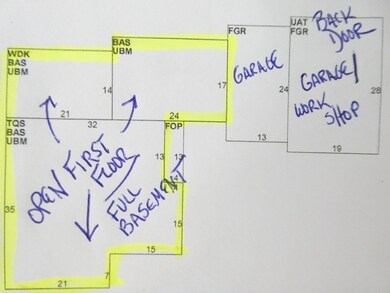 WDK
BAS
UBM
BAS
UBM
FGR
UAT
FGR
BACK
DOOR
GARAGE
GARAGE/
WORK
SHOP
14
17
28
21
32
24
13
19
TQS
BAS
UBM
FOP
13
13
OPEN FIRST
FLOOR
FULL
BASEMENT
35
15
15
7
21